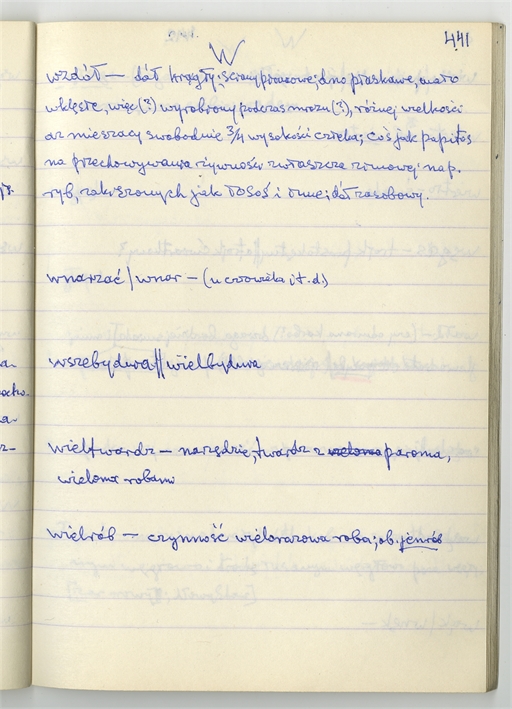 441
W
wzdół — dół kręgły; ściany pionowe; dno płaskawe, mało
wklęsłe, więc (?) wyrobiony podczas mrozu (?), różnej wielkości
aż mieszący swobodnie 3/4 wysokości człeka; coś jak papiłos
na przechowywania żywności zwłaszcza zimowej np.
ryb, zakiszonych jak łosoś i inne; dół zasobowy.
wnarzać / wnor — (u człowieka i t. d.)
wszebydwa // wielbydwa
wieltwardz — narzędzie, twardz z paroma,
wieloma robami
wielrób — czynność wielorazowa roba; ob. jenrób